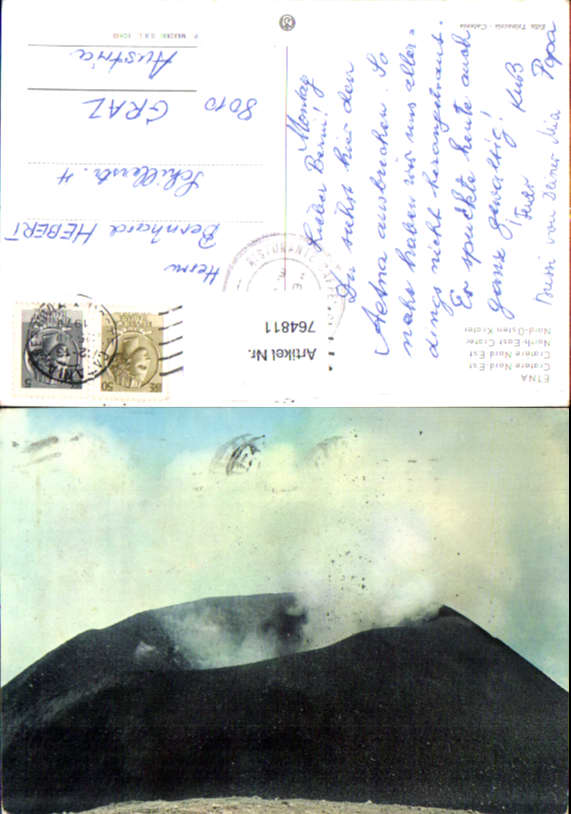 ETNA
Cratere Nord Est
Cratere Nord Est
North-East Crater
Nord-Osten Krater
Montag
Lieber Berni!
Du siehst hier den
Aetna ausbrechen. So
nahe haben wir uns aller=
dings nicht herangetraut.
Er spuckte heute auch
ganz gewaltig!
Kuß
Papa
Bussi von Deiner Mia
Herrn
Bernhard HEBERT
Schillerstr. 4
8010 GRAZ
Austria
Artikel Nr.
764811
50
5
CATANIA
Ediz. Trinacria - Catania